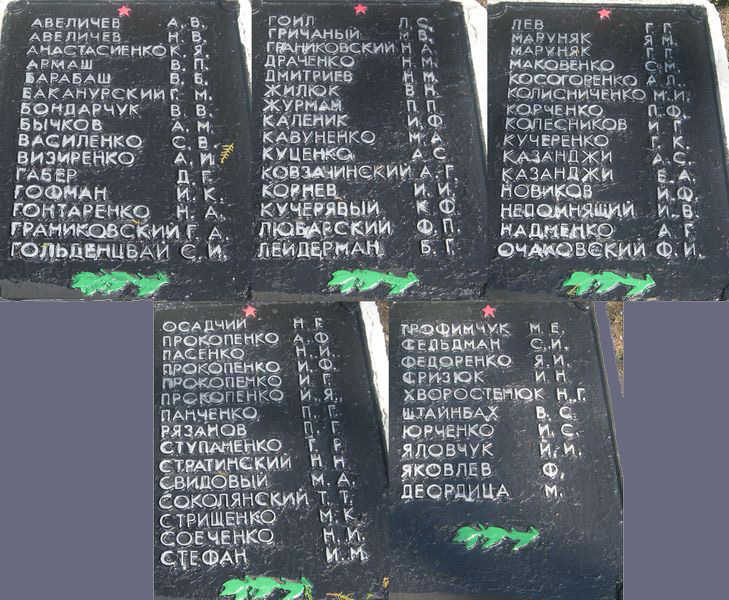 АВЕЛИЧЕВ А. В.
АВЕЛИЧЕВ Н. В.
АНАСТАСИЕНКО К. Я.
АРМАШ В. П.
БАРАБАШ В. Б.
БАКАНУРСКИЙ Г. М.
БОНДАРЧУК В. В.
БЫЧКОВ А. М.
ВАСИЛЕНКО С. В.
ВИЗИРЕНКО А. И.
ГАБЕР Д. Г.
ГОФМАН И. К.
ГОНТАРЕНКО Н. А.
ГРАНИКОВСКИЙ Г. А.
ГОЛЬДЕНЦВАЙ С. И.
ГОИЛ Л. С.
ГРИЧАНЫЙ В.
ГРАНИКОВСКИЙ Н. А.
ДРАЧЕНКО Н. М.
ДМИТРИЕВ Н. М.
ЖИЛЮК В. Н.
ЖУРМАН П. П.
КАЛЕНИК И. Ф.
КАВУНЕНКО М. А.
КУЦЕНКО А. С.
КОВЗАЧИНСКИЙ А. Г.
КОРНЕВ И. И.
КУЧЕРЯВЫЙ К. Ф.
ЛЮБАРСКИЙ Ф. П.
ЛЕЙДЕРМАН Б. Г.
ЛЕВ Г. Г.
МАРУНЯК Я. М.
МАРУНЯК Г. М.
МАКОВЕНКО С. М.
КОСОГОРЕНКО А. Л.
КОЛИСНИЧЕНКО М. И.
КОРЧЕНКО П. Ф.
КОЛЕСНИКОВ И. Г.
КУЧЕРЕНКО Г. К.
КАЗАНДЖИ А. С.
КАЗАНДЖИ Е. А.
НОВИКОВ И. Ф.
НЕПОМНЯЩИЙ И. В.
НАДМЕНКО А. Г.
ОЧАКОВСКИЙ Ф. И.
ОСАДЧИЙ Н. Г.
ПРОКОПЕНКО А. Ф.
ПАСЕНКО Н. И.
ПРОКОПЕНКО И. Ф.
ПРОКОПЕНКО И. Г.
ПРОКОПЕНКО И. Я.
ПАНЧЕНКО П. Г.
РЯЗАНОВ П. Г.
СТУПАНЕНКО Г. Р.
СТРАТИНСКИЙ Н. Н.
СВИДОВЫЙ М. А.
СОКОЛЯНСКИЙ Т. Т.
СТРИЩЕНКО М. К.
СОБЧЕНКО Н. И.
СТЕФАН И. М.
ТРОФИМЧУК М. Е.
ФЕЛЬДМАН С. И.
ФЕДОРЕНКО Я. И.
ФРИЗЮК И. Н.
ХВОРОСТЕНЮК Н. Г.
ШТАЙНБАХ В. С.
ЮРЧЕНКО И. С.
ЯЛОВЧУК И. И.
ЯКОВЛЕВ Ф.
ДЕОРДИЦА М.